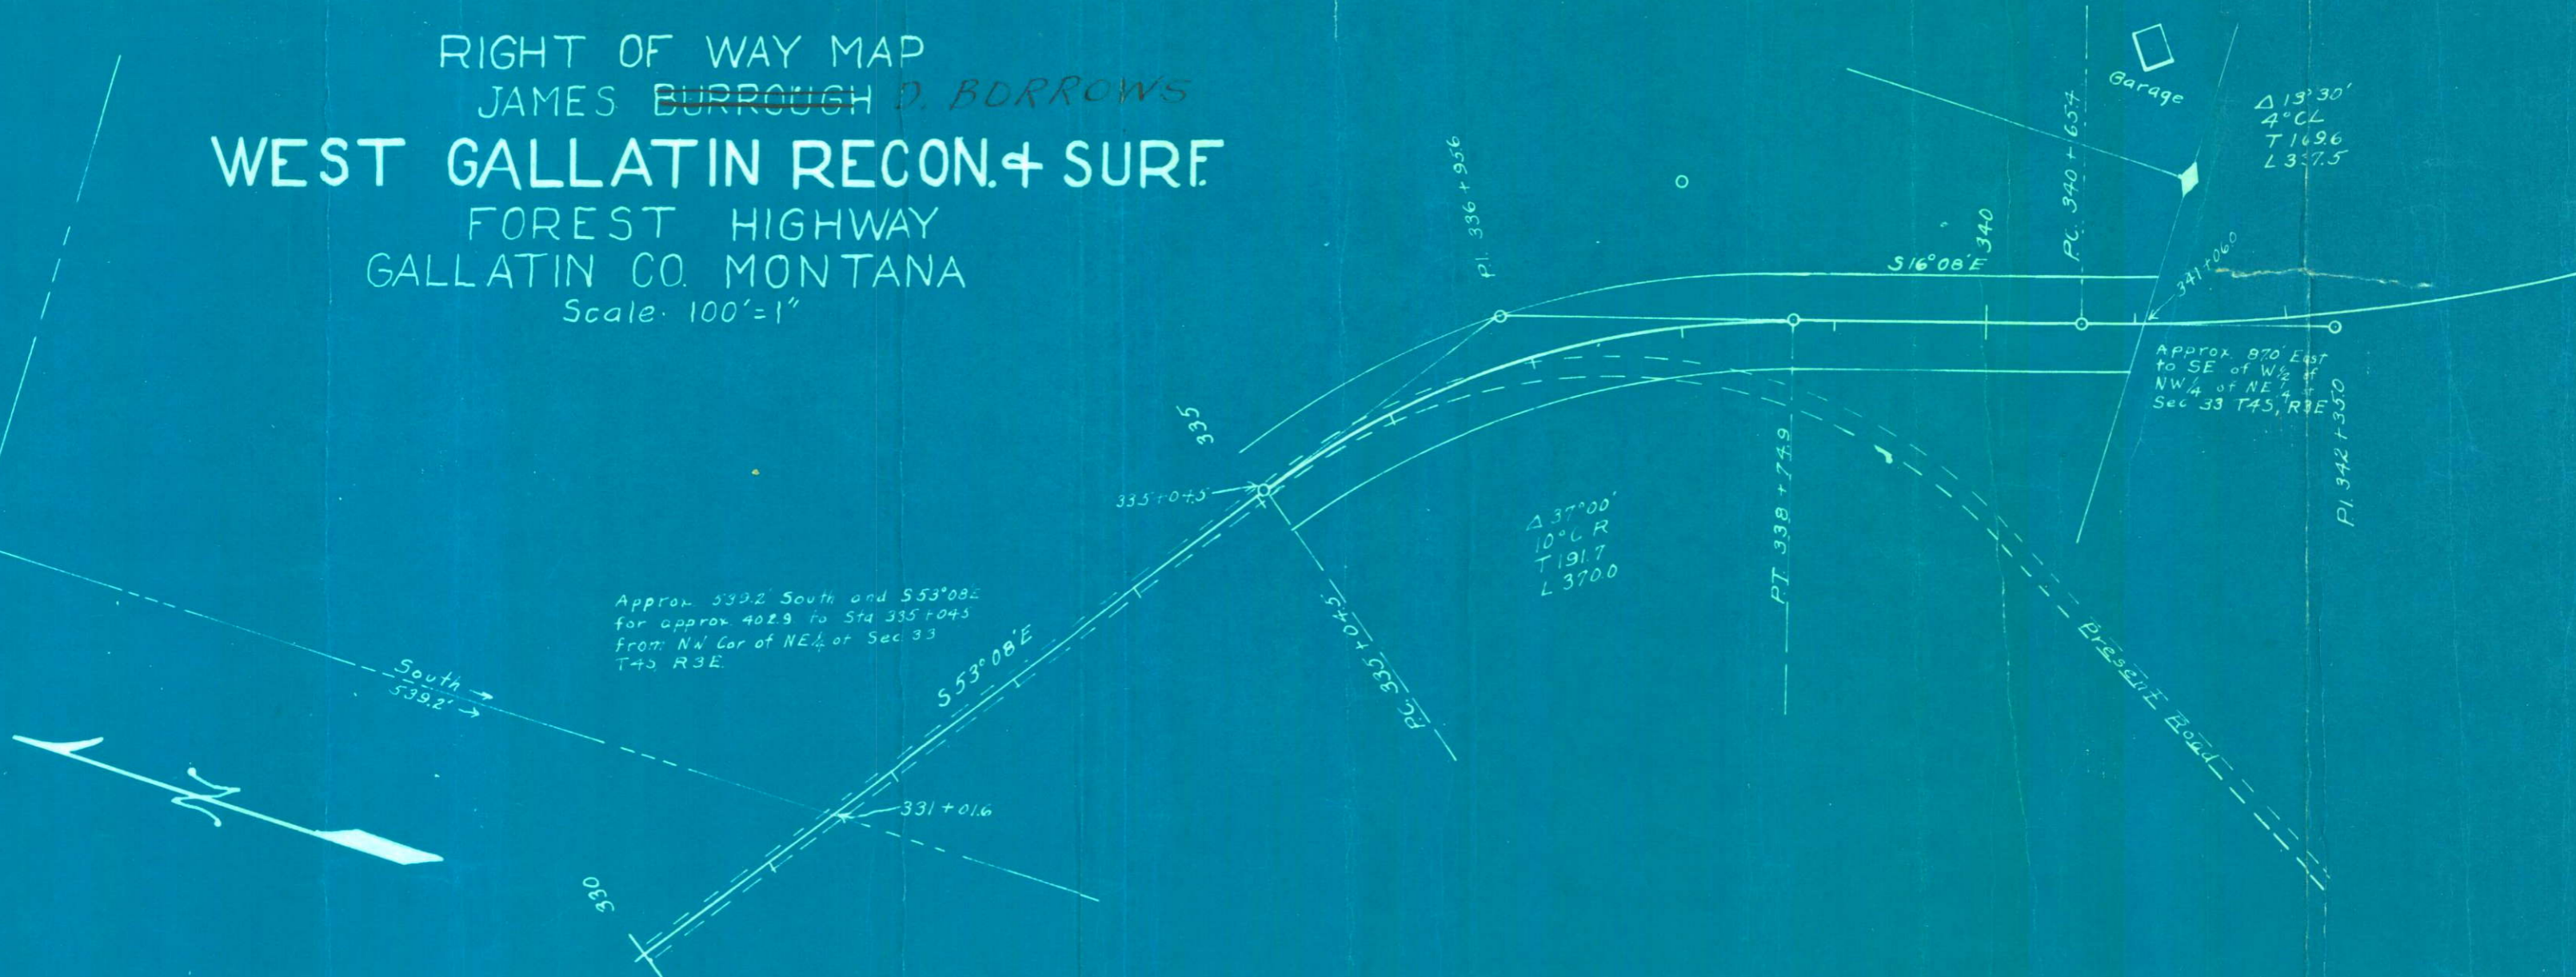 RIGHT OF WAY MAP
JAMES BURROUGH D. BORROWS
WEST GALLATIN RECON. & SURF.
FOREST HIGHWAY
GALLATIN CO. MONTANA
Scale· 100'=1"
Garage
Δ 13°30'
4°CL
T 169.6
L 337.5
P.I. 336+95.6
P.C. 340+65.4
340
S16°08'E
341+06.0
Approx. 870' East
to SE of W½ of
NW¼ of NE¼ of
Sec 33 T4S, R3E
P.I. 342+35.0
335
335+04.5
Δ 37°00'
10°C R
T 191.7
L 370.0
P.T. 338+74.9
P.C. 335+04.5
Present Road
Approx. 539.2' South and S53°08'E
for approx. 402.9 to Sta 335+04.5
from NW Cor of NE¼ of Sec 33
T4S, R3E.
S53°08'E
South
539.2'
331+01.6
330